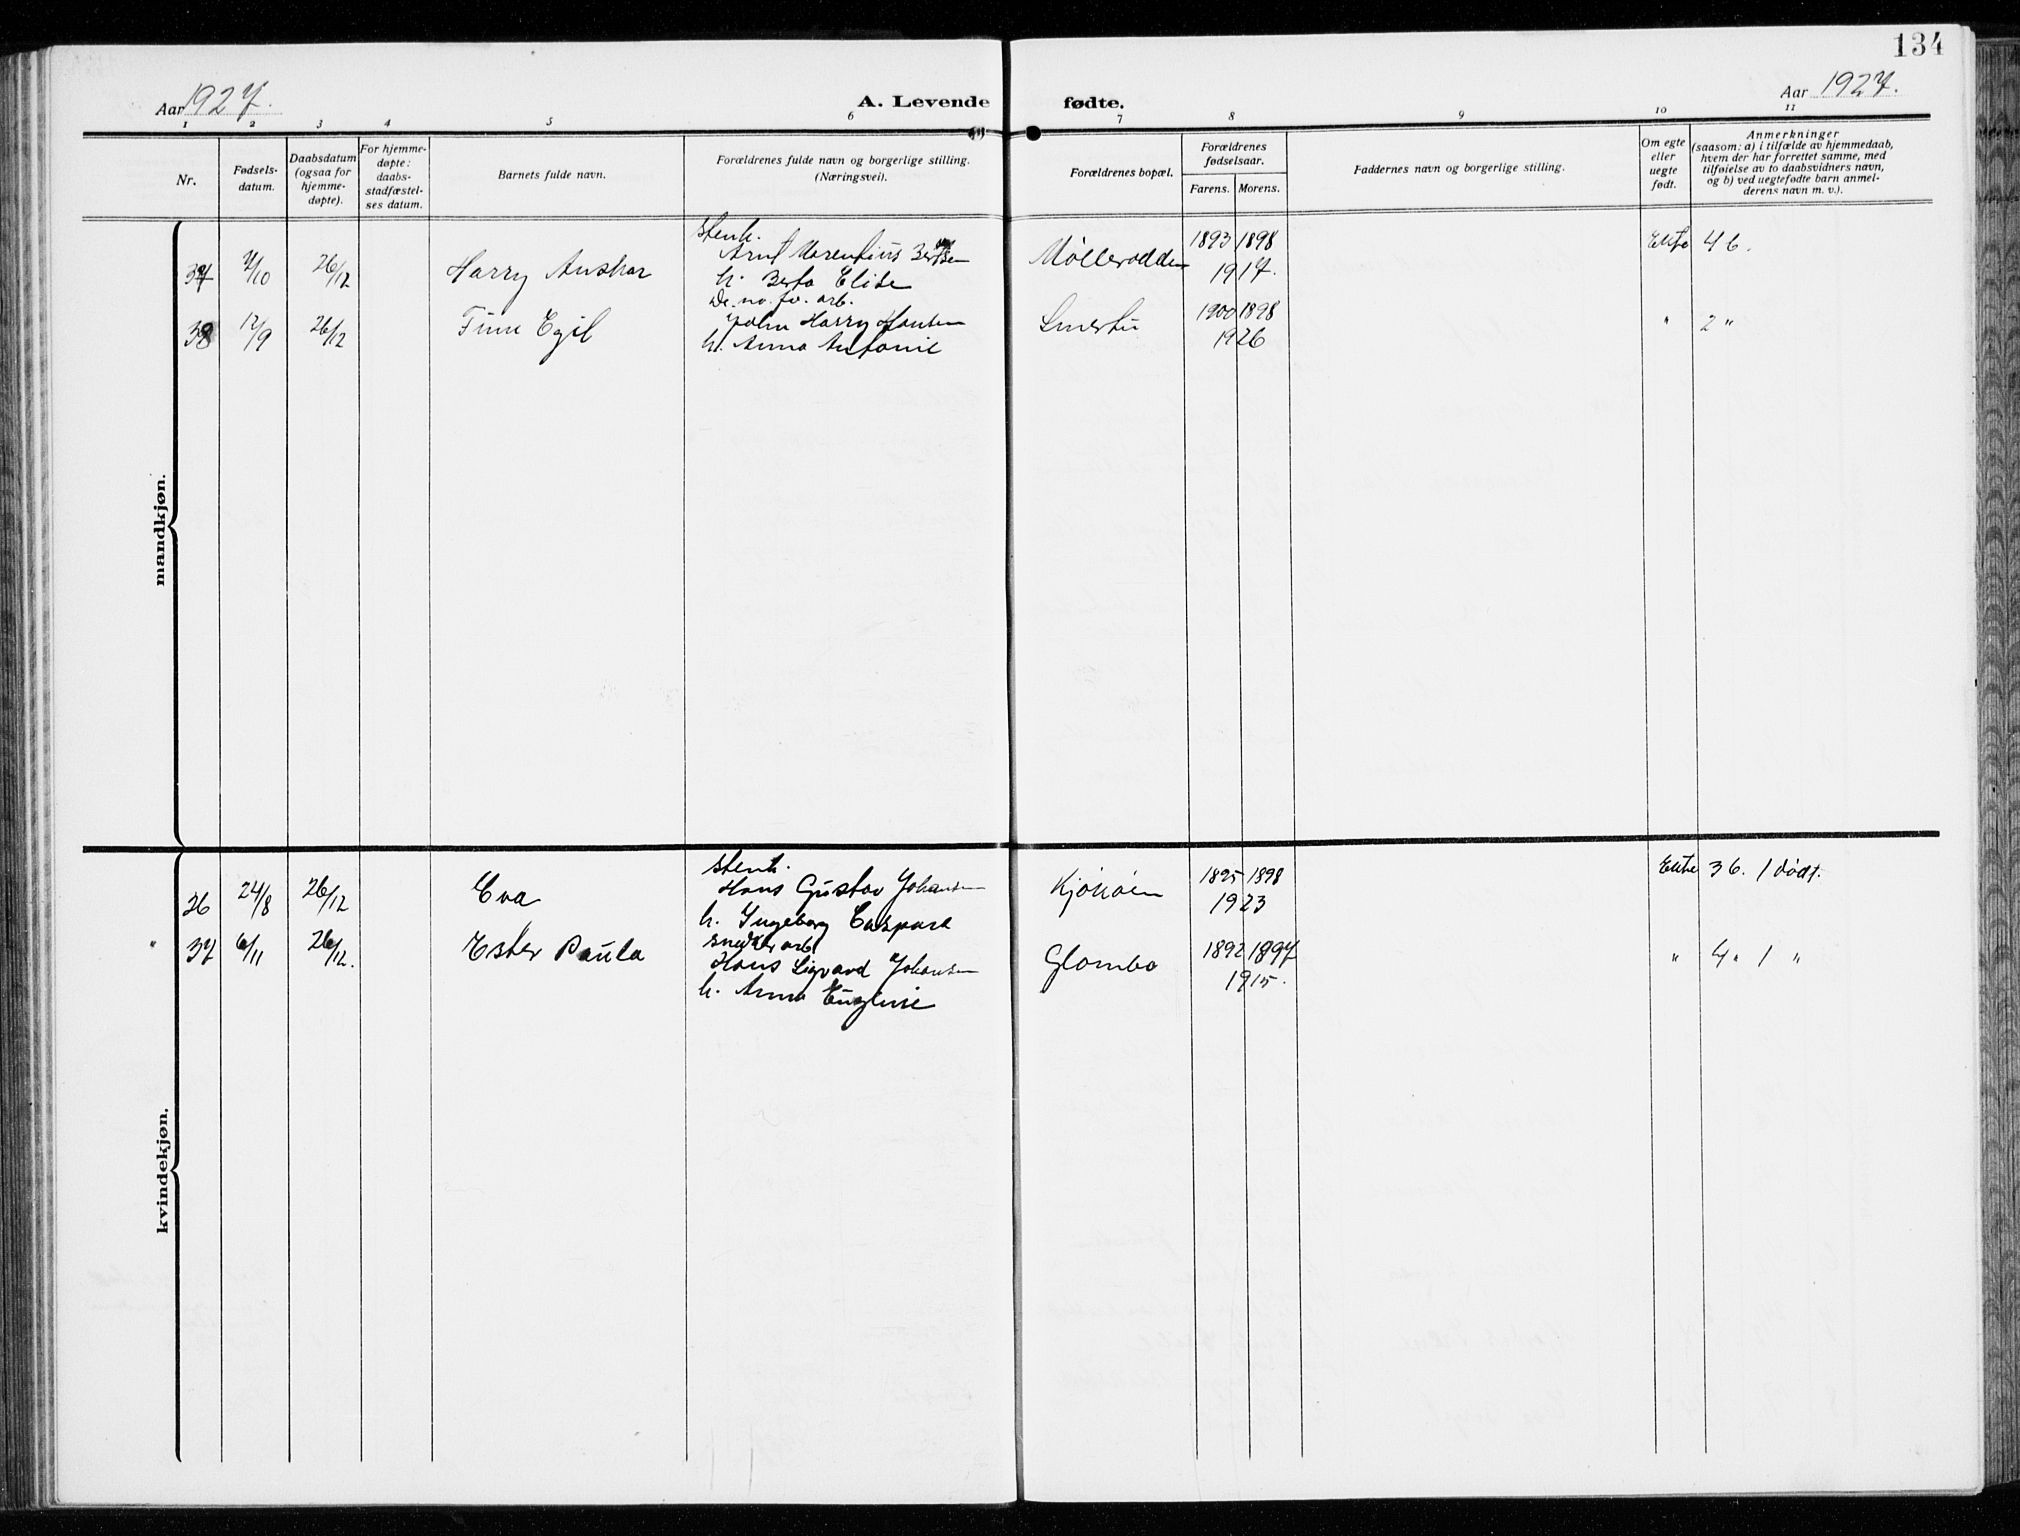 134
Aar 1927.
A. Levende fødte.
Aar 1927.
1 2 3 4 5 6 7 8 9 10 11
Nr.
Fødsels-
datum.
Daabsdatum
(ogsaa for
hjemme-
døpte).
For hjemme-
døpte:
daabs-
stadfæstel-
ses datum.
Barnets fulde navn.
Forældrenes fulde navn og borgerlige stilling.
(Næringsvei).
Forældrenes bopæl.
Forældrenes
fødselsaar.
Farens. Morens.
Faddernes navn og borgerlige stilling.
Om egte
eller
uegte
født.
Anmerkninger
(saasom: a) i tilfælde av hjemmedaab,
hvem der har forrettet samme, med
tilføielse av to daabsvidners navn,
og b) ved uegtefødte barn anmel-
derens navn m. v.).
mandkjøn.
stenh.
37 7/10 26/12 Harry Anskar Arnt Marentius 1893 1898 Ekte 4 b.
h. Berta Elise 1917.
arb.
38 17/9 26/12 Finn Egil John Harry Hansen 1900 1898 " 2 "
h. Anna Antonie 1926
kvindekjøn.
stenh.
26 24/8 26/12 Eva Hans Gustav Johansen Kjøkøen 1895 1898 Ekte 3 b. 1 dødf.
h. Ingeborg Caspara 1923
arb
" 37 6/11 26/12. Ester Paula Hans Sigvard Johansen Glombo 1892 1897 " 4 " 1 "
h. Anna Eugenie 1915.